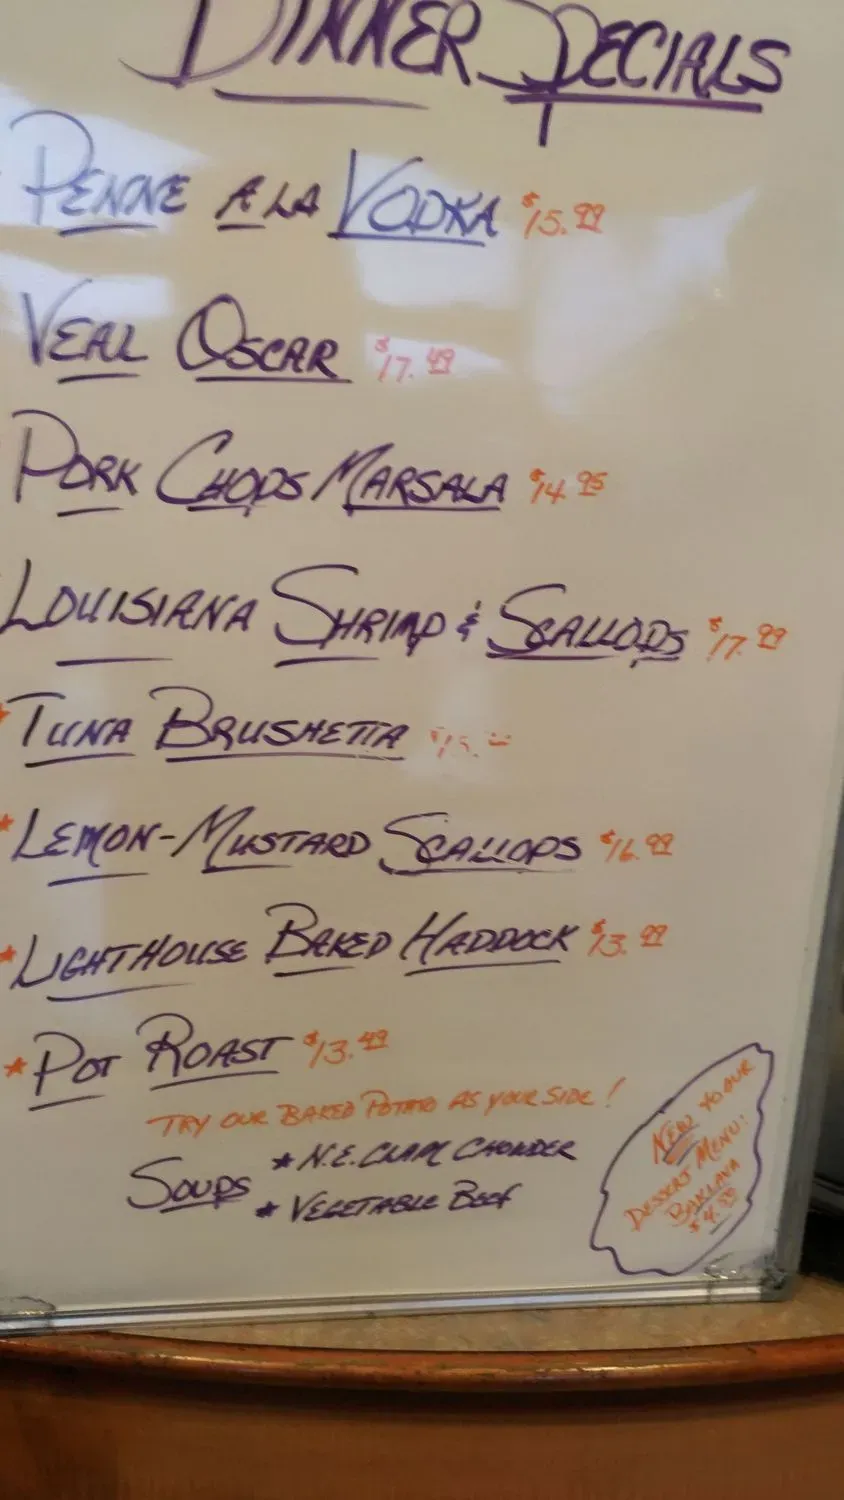 DINNER SPECIALS
PENNE A LA VODKA $15.99
VEAL OSCAR $17.49
PORK CHOPS MARSALA $14.95
LOUISIANA SHRIMP & SCALLOPS $17.99
* TUNA BRUSHETTA
* LEMON-MUSTARD SCALLOPS $16.99
* LIGHTHOUSE BAKED HADDOCK $13.99
* POT ROAST $13.49
TRY OUR BAKED POTATO AS YOUR SIDE!
SOUPS * N.E. CLAM CHOWDER
* VEGETABLE BEEF
NEW TO OUR
DESSERT MENU:
BAKLAVA